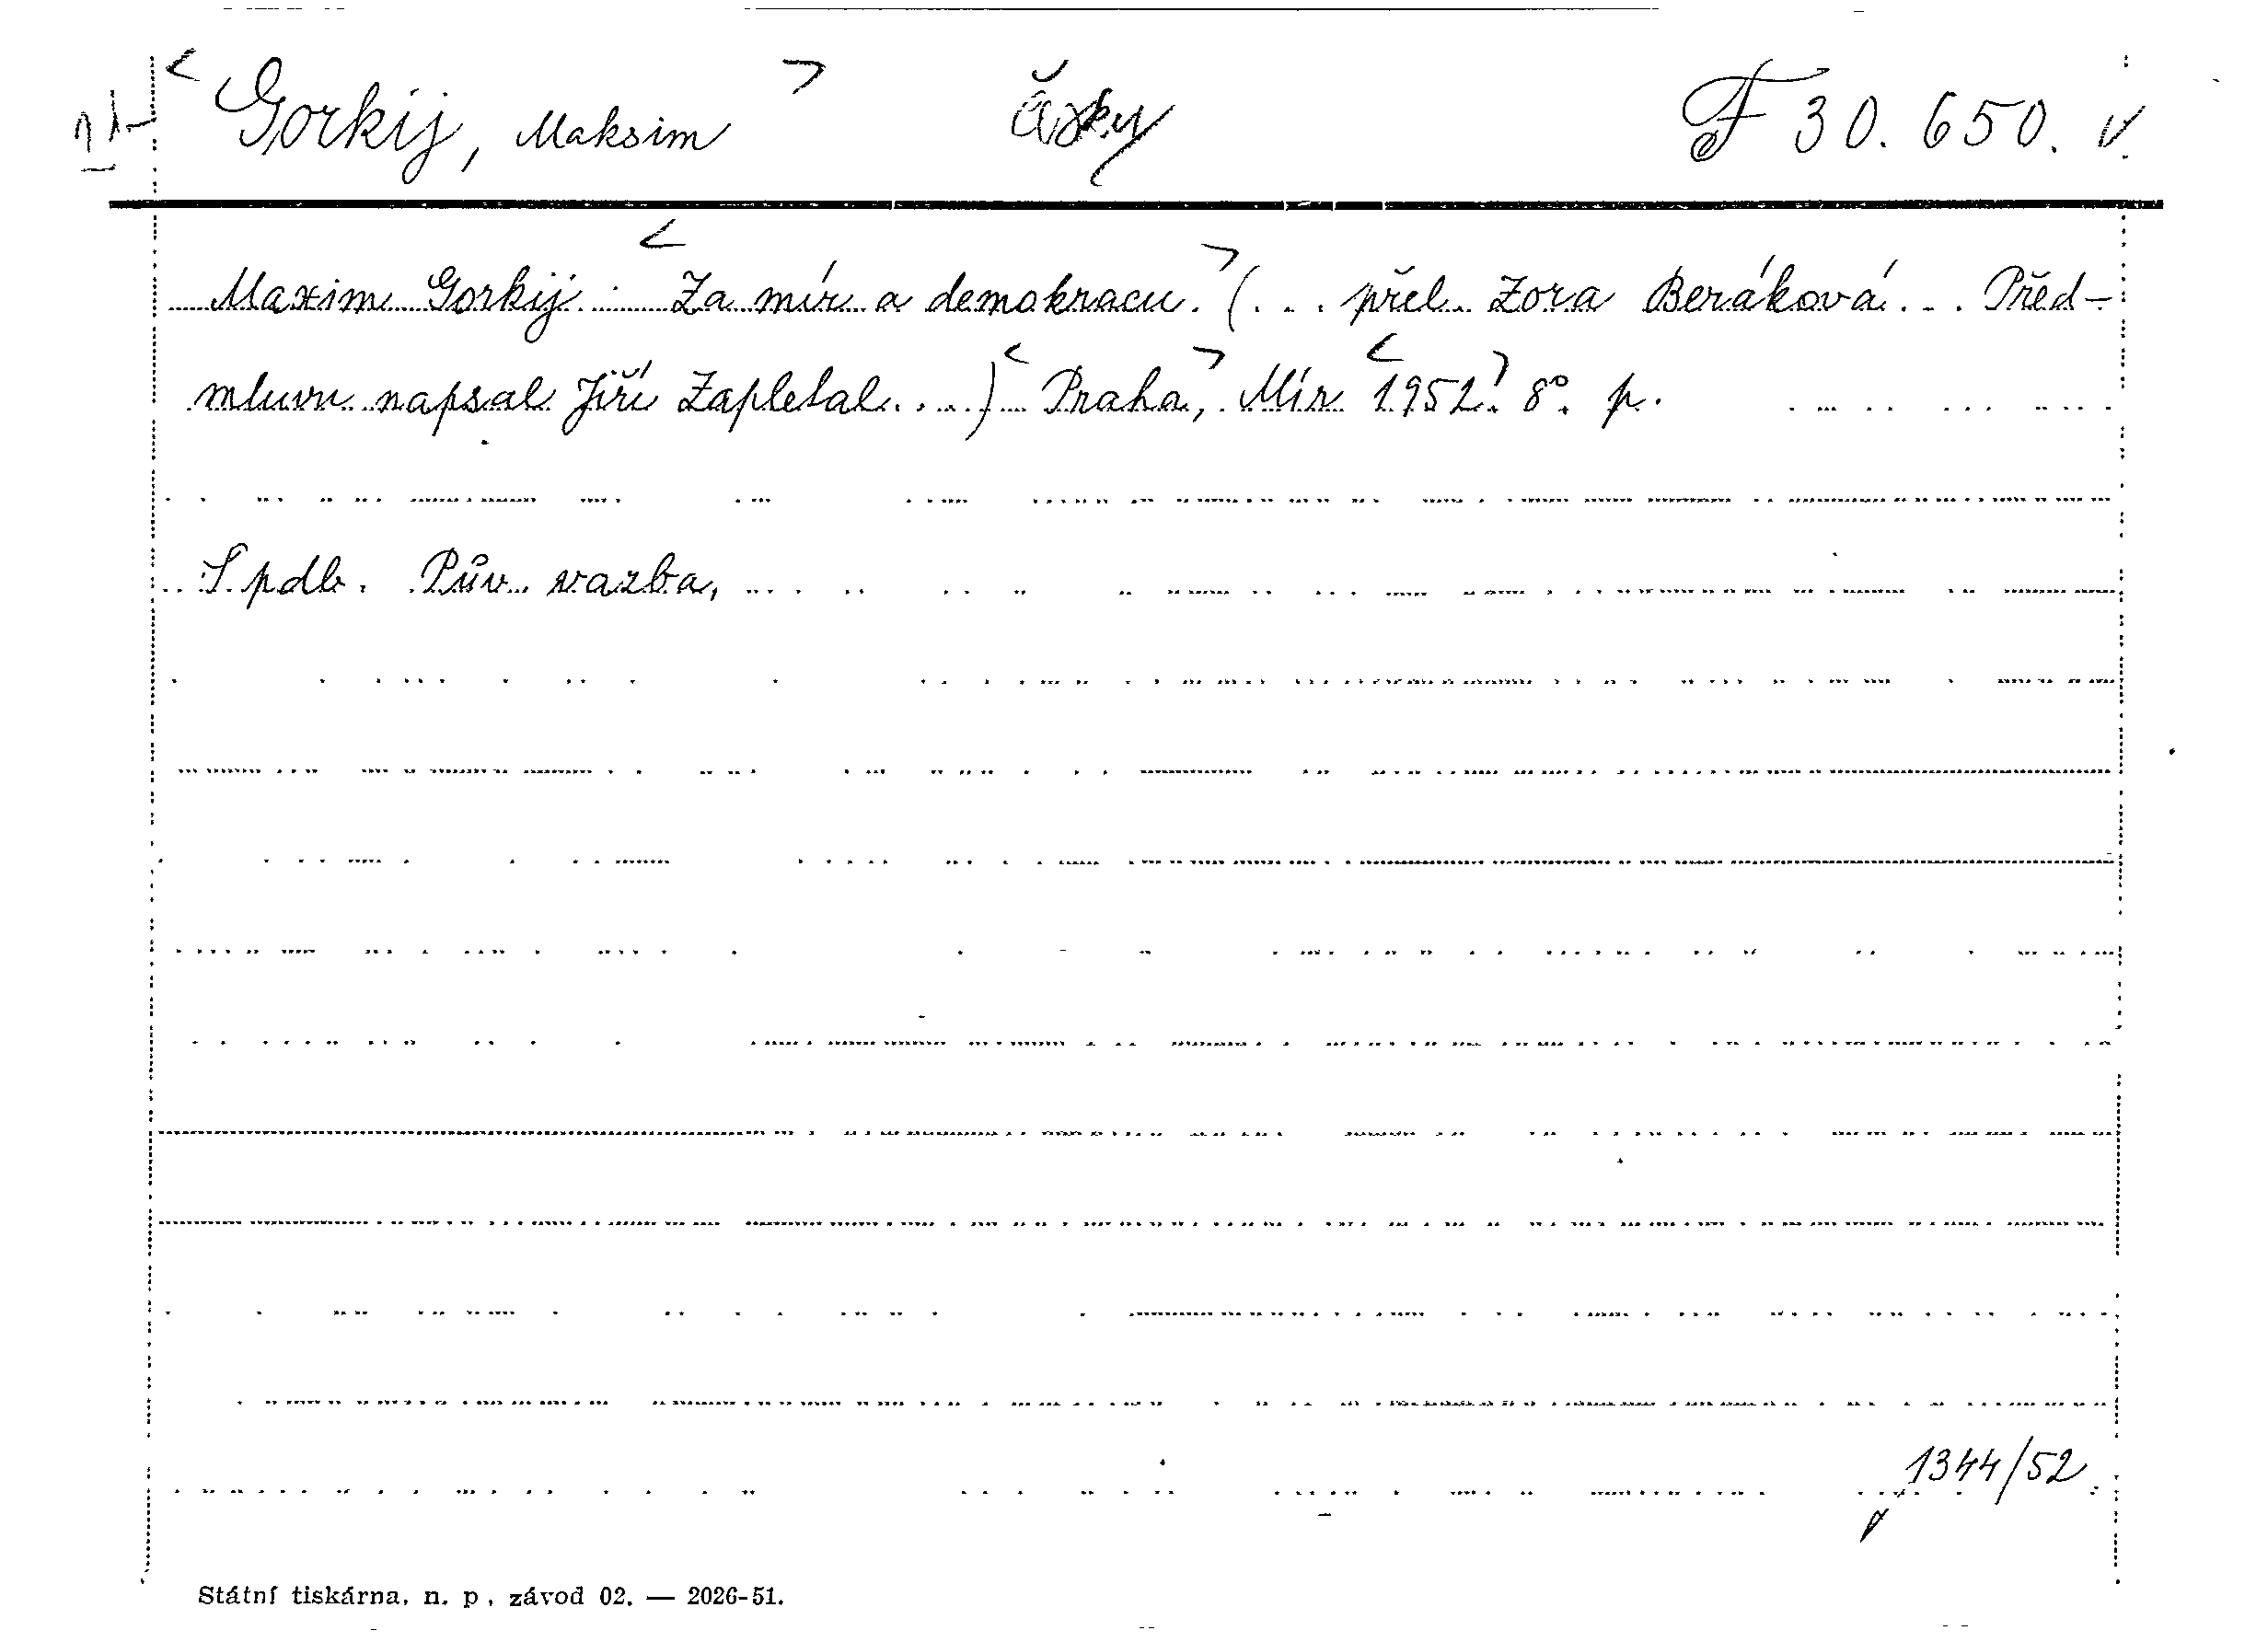 < Gorkij, Maksim > česky F 30.650. v.
Maxim Gorkij: < Za mír a demokracii. > (... přel. Zora Beráková... Před-
mluvu napsal Jiří Zapletal....) < Praha, > Mír < 1952. > 8°. p.
S pdb. Pův. vazba,
1344/52
Státní tiskárna, n. p., závod 02. — 2026-51.